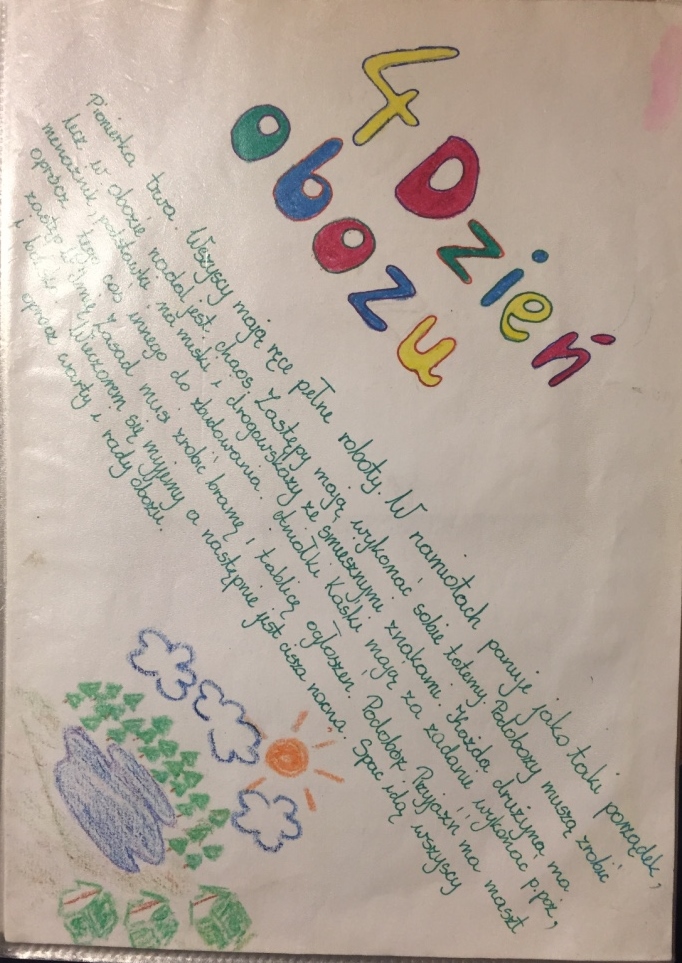 4 Dzień
obozu
Pionierka trwa. Wszyscy mają ręce pełne roboty. W namiotach panuje jako taki porządek,
lecz w obozie nadal jest chaos. Zastępy mają wykonać sobie totemy. Podobozy muszą zrobić
menażnik, podstawki na miski i drogowskazy ze śmiesznymi znakami. Każda drużyna ma
oprócz tego coś innego do zbudowania. Aniołki Kaśki mają za zadanie wykonać p.poż,
zastęp w imię Zasad musi zrobić bramę i tablicę ogłoszeń. Podobóz Przyjaźń ma maszt
i Wieczorem się myjemy a następnie jest cisza nocna. Spać idą wszyscy
oprócz warty i rady obozu.